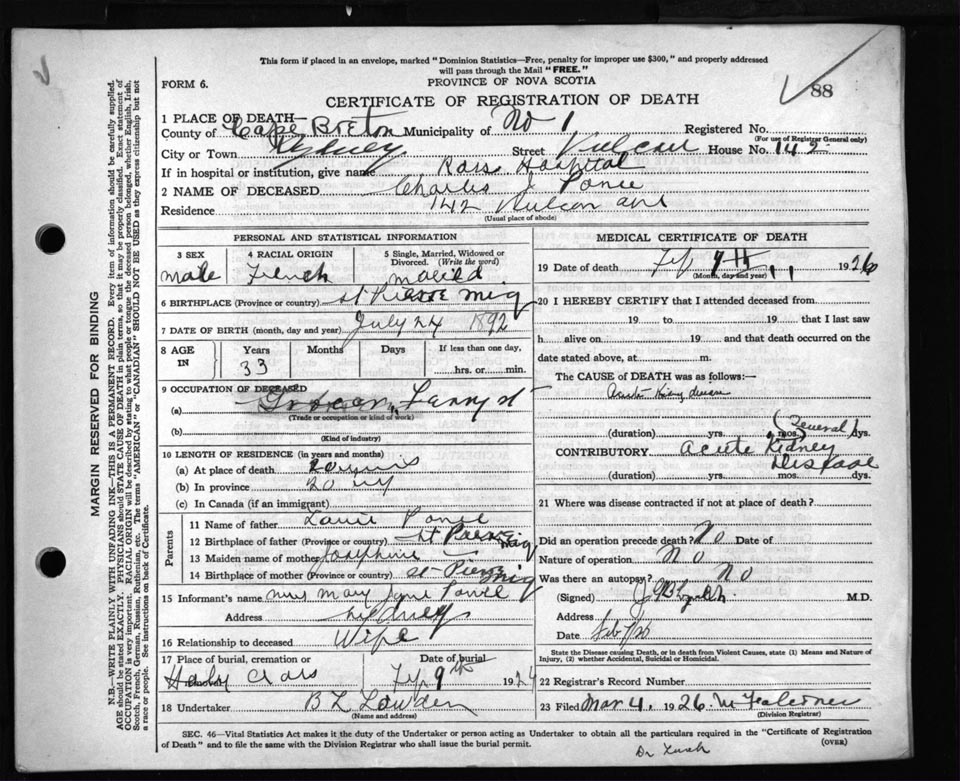 This form if placed in an envelope, marked "Dominion Statistics—Free, penalty for improper use $300," and properly addressed
will pass through the Mail "FREE."
FORM 6.
PROVINCE OF NOVA SCOTIA
88
CERTIFICATE OF REGISTRATION OF DEATH
1 PLACE OF DEATH—
County of Cape Breton Municipality of No 1 Registered No.
(For use of Registrar General only)
City or Town Sydney Street Vulcan House No. 142
If in hospital or institution, give name Ross Hospital
2 NAME OF DECEASED Charles J Ponee
Residence 142 Vulcan ave
(Usual place of abode)
PERSONAL AND STATISTICAL INFORMATION
3 SEX 4 RACIAL ORIGIN 5 Single, Married, Widowed or
Divorced. (Write the word)
male French
6 BIRTHPLACE (Province or country) St Pierre Miq
7 DATE OF BIRTH (month, day and year) July 24 1892
8 AGE IN Years Months Days If less than one day,
33 hrs. or min.
9 OCCUPATION OF DECEASED
(a)
(Trade or occupation or kind of work)
(b)
(Kind of industry)
10 LENGTH OF RESIDENCE (in years and months)
(a) At place of death
(b) In province 20
(c) In Canada (if an immigrant)
Parents
11 Name of father Ponee
12 Birthplace of father (Province or country) St Pierre Miq
13 Maiden name of mother Josephine
14 Birthplace of mother (Province or country) St Pierre Miq
15 Informant's name Mrs Mary Jane Ponee
Address Sydney
16 Relationship to deceased Wife
17 Place of burial, cremation or Date of burial
Holy Cross 9th 192
18 Undertaker B L Lowden
(Name and address)
MEDICAL CERTIFICATE OF DEATH
19 Date of death 7th 1926
(Month, day and year)
20 I HEREBY CERTIFY that I attended deceased from
19 to 19 that I last saw
h alive on 19 and that death occurred on the
date stated above, at m.
The CAUSE of DEATH was as follows:—
Acute Kidney disease
(duration) yrs. mos. dys.
(General)
CONTRIBUTORY Acute Kidney
Disease
(duration) yrs. mos. dys.
21 Where was disease contracted if not at place of death?
Did an operation precede death? No Date of
Nature of operation No
Was there an autopsy? No
(Signed) M.D.
Address
Date Feb 7/26
State the Disease causing Death, or in death from Violent Causes, state (1) Means and Nature of
Injury, (2) whether Accidental, Suicidal or Homicidal.
22 Registrar's Record Number
23 Filed Mar 4. 1926
(Division Registrar)
SEC. 46—Vital Statistics Act makes it the duty of the Undertaker or person acting as Undertaker to obtain all the particulars required in the "Certificate of Registration
of Death" and to file the same with the Division Registrar who shall issue the burial permit.
(OVER)
MARGIN RESERVED FOR BINDING
N.B.—WRITE PLAINLY WITH UNFADING INK—THIS IS A PERMANENT RECORD. Every item of information should be carefully supplied.
AGE should be stated EXACTLY. PHYSICIANS should STATE CAUSE OF DEATH in plain terms, so that it may be properly classified. Exact statement of
OCCUPATION is very important. RACIAL ORIGIN will be described by stating to what people or tongue the deceased person belonged, whether English, Irish,
Scotch, French, German, Russian, Ruthenian, etc. The terms "AMERICAN" or "CANADIAN" SHOULD NOT BE USED as they express citizenship but not
a race or people. See instructions on back of Certificate.